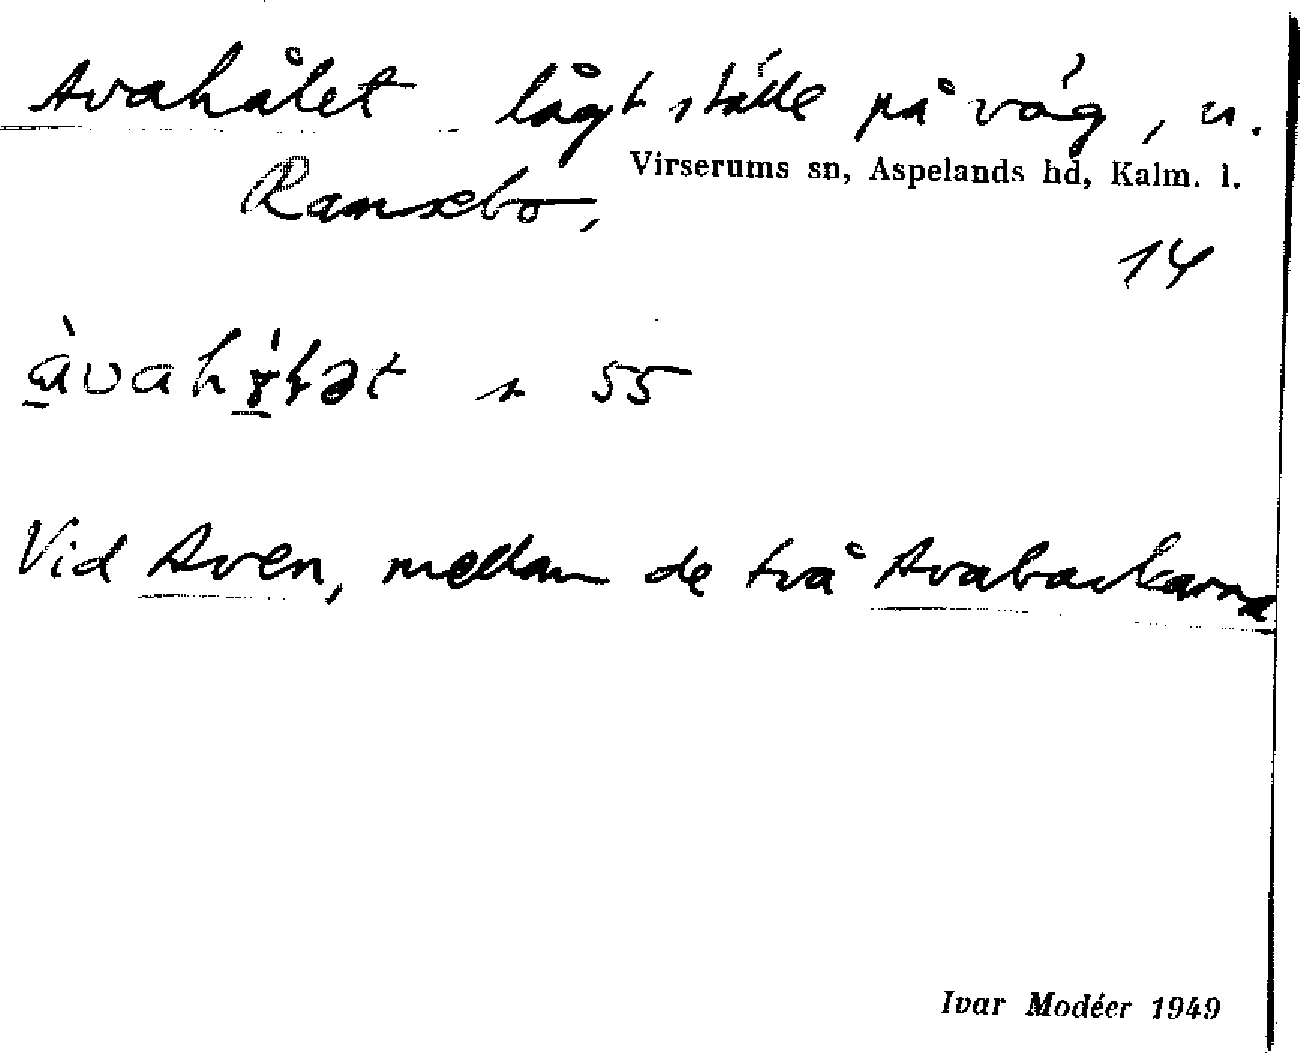 Avahålet lågt ställe på väg, n.
Virserums sn, Aspelands hd, Kalm. l.
Ramsebo,
14
55
Vid Aven, mellan de två Avabackarna
Ivar Modéer 1949